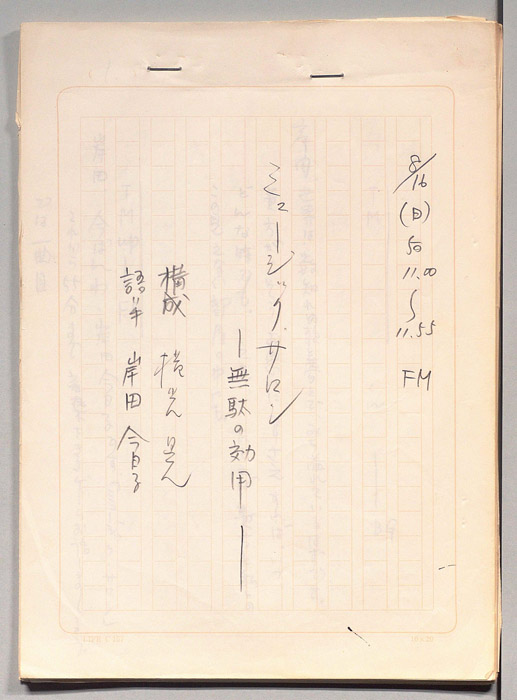 8/16 (日) 11.00 〜 11.55 FM
ミュージック・サロン
―無駄の効用―
構成 横光 晃
語り手 岸田 今日子